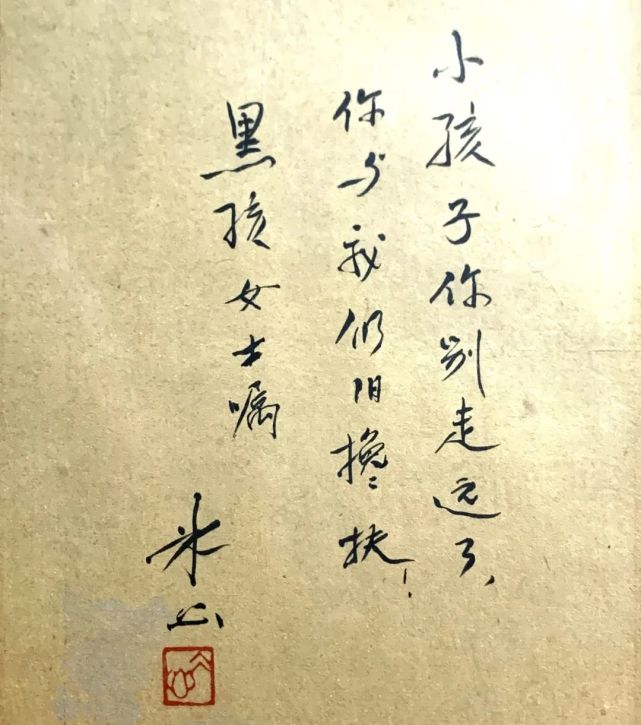 小孩子你别走远了、
你与我仍旧搀扶！
黑孩女士嘱